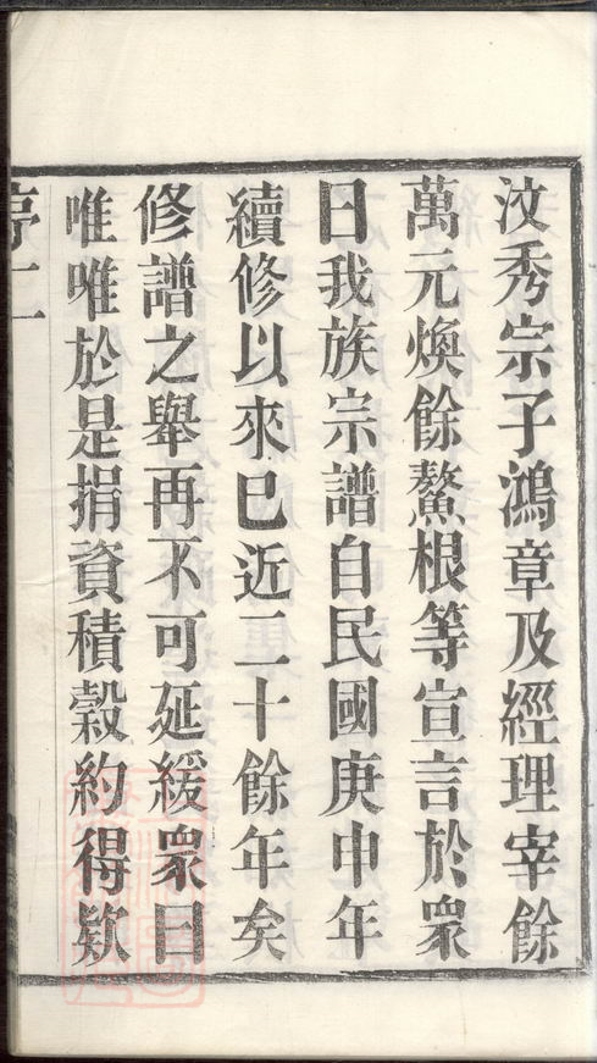 汶秀宗子鴻章及經理宰餘
萬元煥餘鰲根等宣言於眾
曰我族宗譜自民國庚申年
續修以來已近二十餘年矣
修譜之舉再不可延緩眾曰
唯唯於是捐資積穀約得欵
序 二